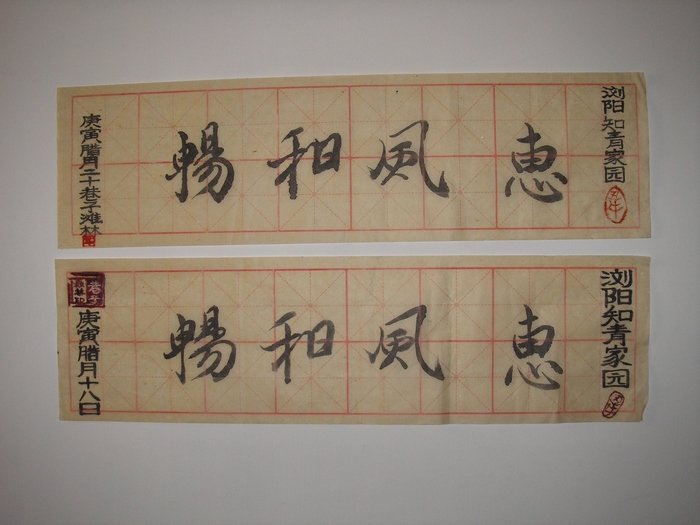 浏阳知青家园
惠風和暢
庚寅腊月二十巷子滩林
浏阳知青家园
惠風和暢
庚寅腊月十八日